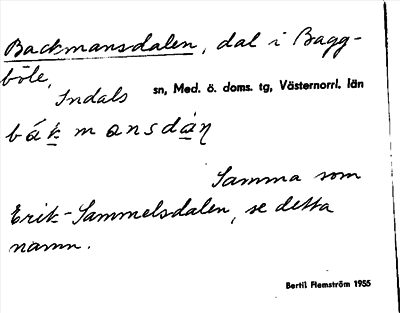 Backmansdalen, dal i Bagg-
böle,
Indals sn, Med. ö. doms. tg, Västernorrl. län
bákmansdàn̥
Samma som
Erik-Sammelsdalen, se detta
namn.
Bertil Flemström 1955